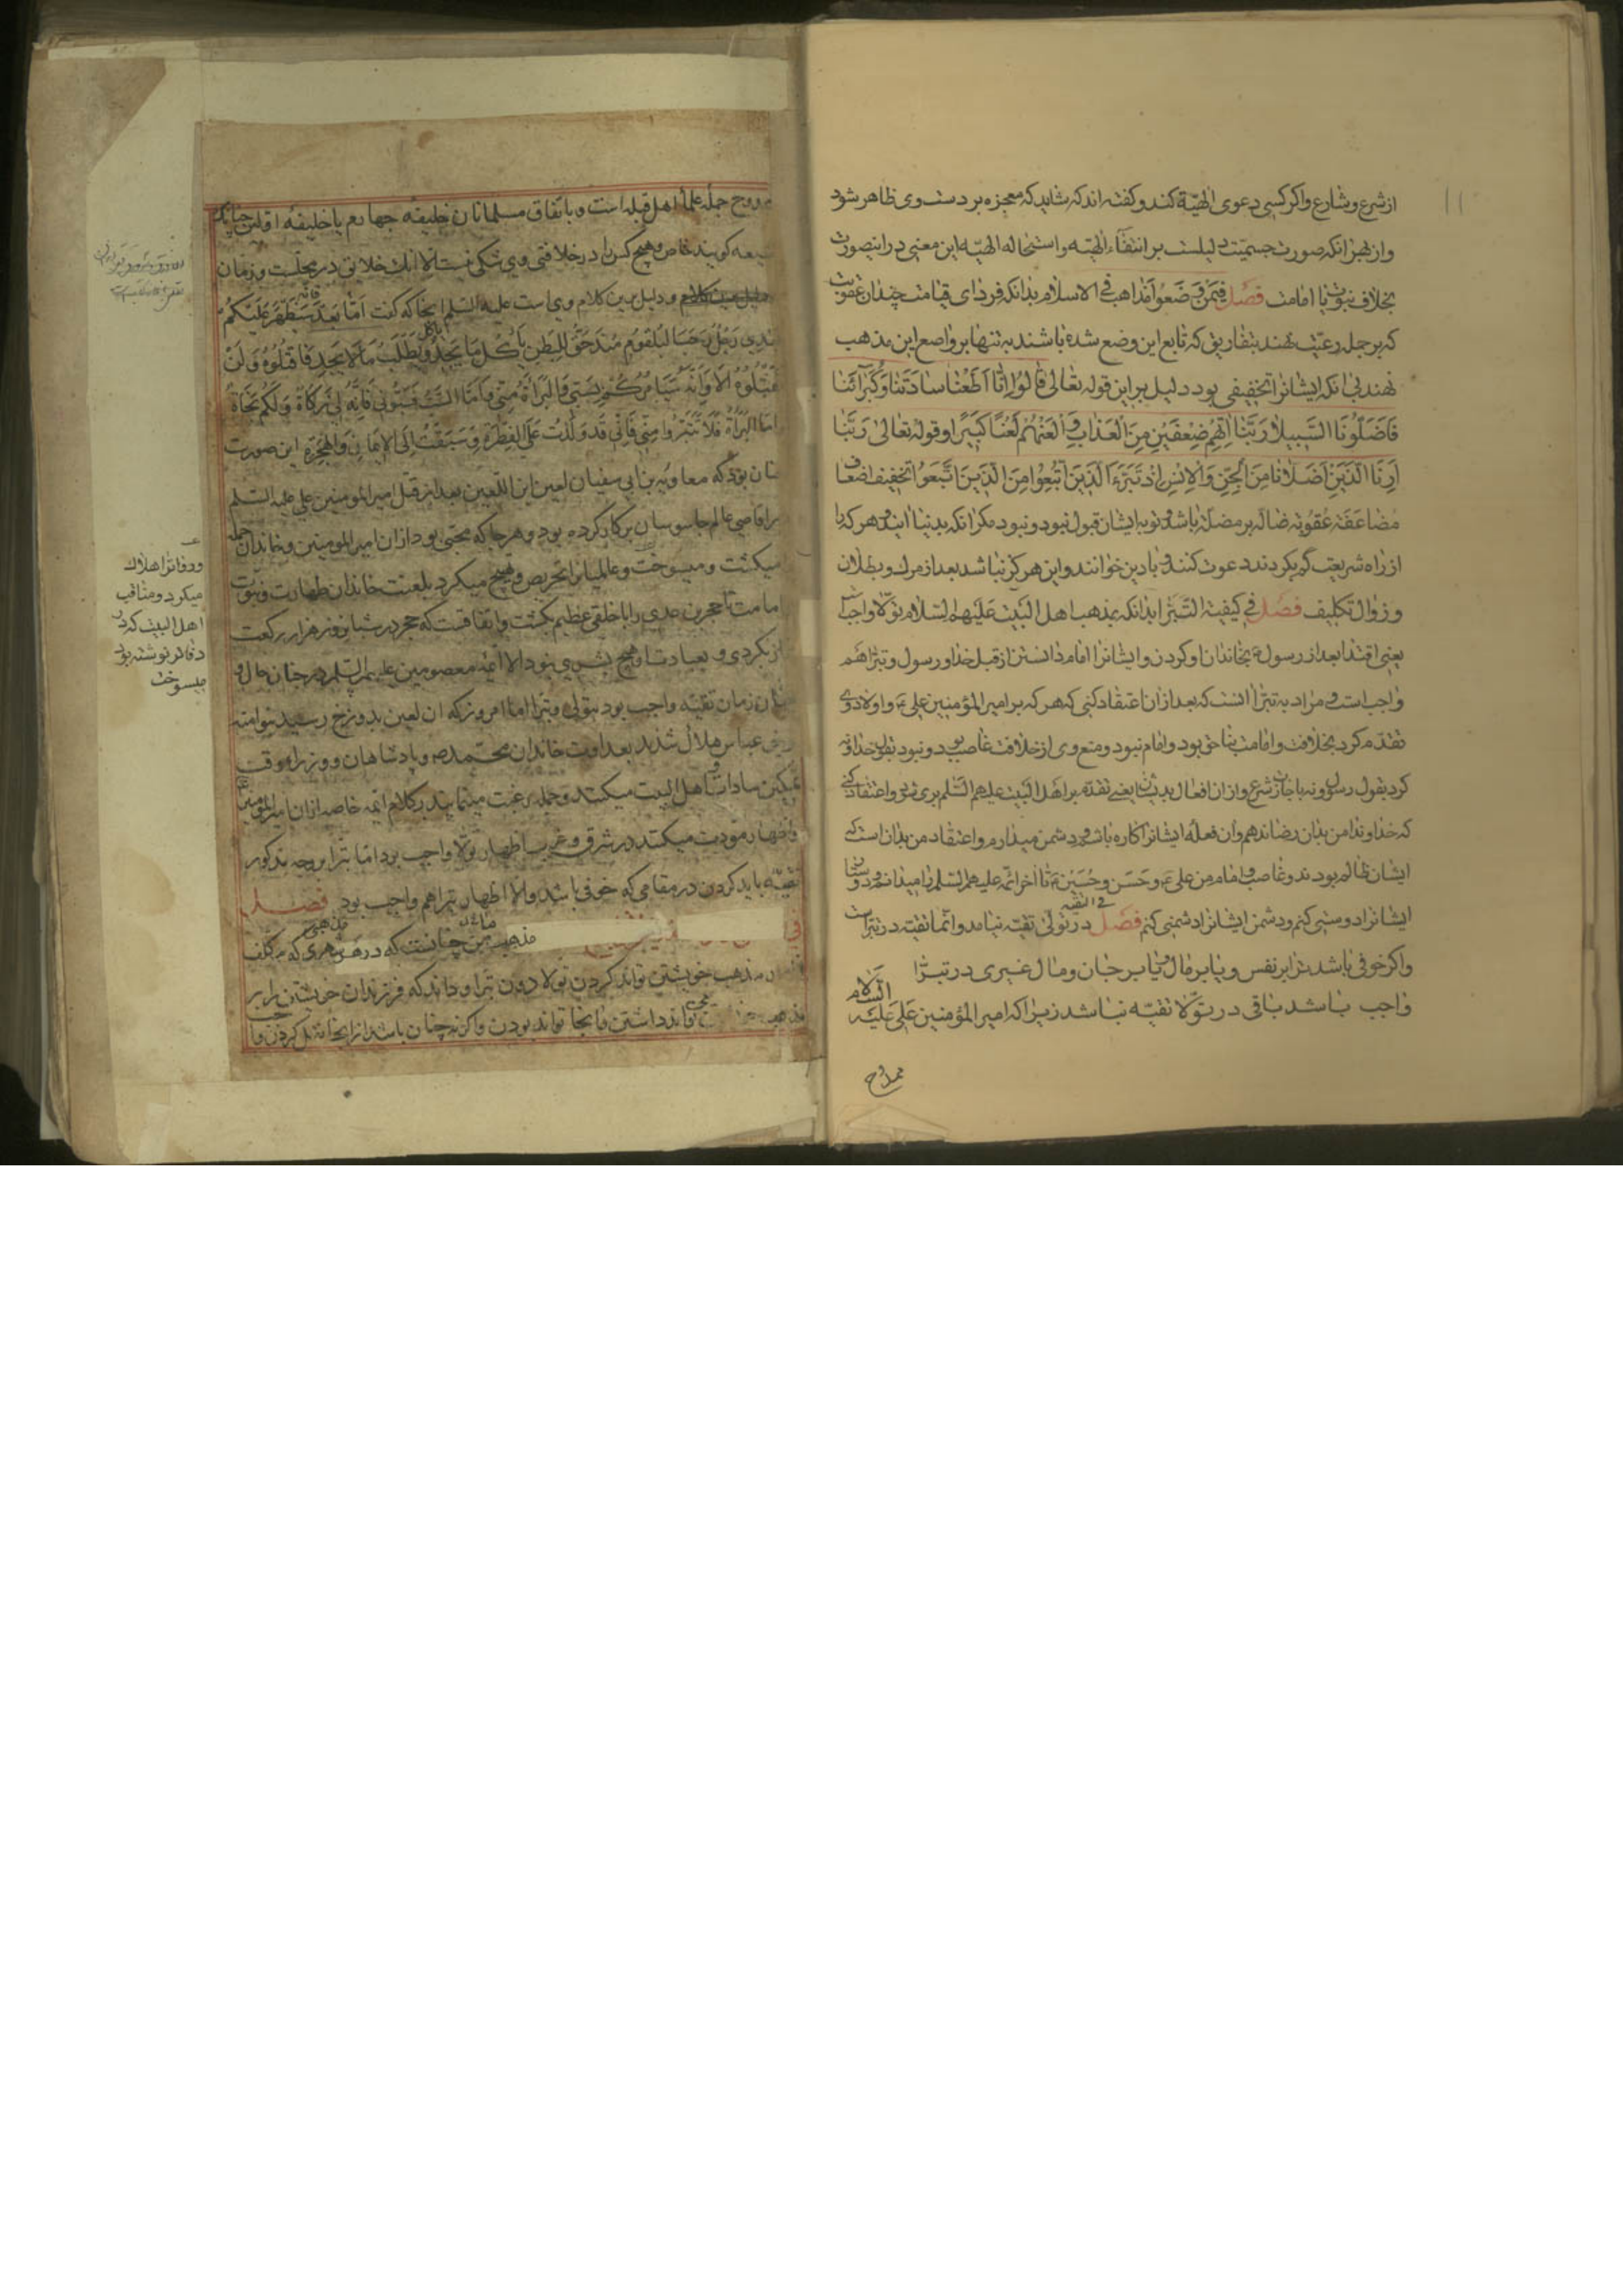 از شرع و شارع واکر کسی دعوی الهیّة کند و کفته اند که شاید که معجزه بر دست وی ظاهر شود
واز بهر انکه صورت جسمیّت دلیلست بر انتفاء الهیّه و استحاله الهیّه این معنی در این صورت
بخلاف نبوّت یا امامت فصل فیمن وضعوا مذاهب فی الاسلام بدانکه فردای قیامت چندان عقوبت
که بر جمله رعیّت نهند بتفاریق که تابع این وضع شده باشند به تنها بر واضع این مذهب
نهند بی انکه ایشانرا تخفیفی بود دلیل بر این قوله تعالی قالوا انّا اَطَعْنا سادَتَنا وَکُبَرآئَنا
فَاَضَلّونَا السَّبیلا رَبَّنا اٰتِهِمْ ضِعْفَیْنِ مِنَ الْعَذابِ وَ الْعَنْهُمْ لَعْنًا کَبیرًا و قوله تعالی رَبَّنا
اَرِنَا الَّذَیْنِ اَضَلّانا مِنَ الْجِنِّ وَالْاِنْسِ اِذْ تَبَرَّءَ الَّذینَ اتُّبِعُوا مِنَ الَّذینَ اتَّبَعُوا تخفیف اضعاف
مضاعفهٔ عقوبه ضالّه بر مضلّه باشد و توبه ایشان قبول نبود و نبود مکر انکه بدنیا ایند و هر که را
از راه شریعت کم بکردند دعوت کنند و با دین خوانند و این هرکز نباشد بعد از مرک و بطلان
و زوال تکلیف فصل فی کیفیة التبرّا بدانکه بمذهب اهل البیت علیهم السلام تولّا واجب است
یعنی اقتدا بعد از رسول ص بخاندان او کردن و ایشانرا امام دانستن از قبل خدا و رسول و تبرّا هم
واجب است و مراد به تبرّا انست که بعد از ان اعتقاد کنی که هر که بر امیر المؤمنین علی ع و اولاد وی
تقدّم کرد بخلافت و امامت بناحق بود و امام نبود و منع وی از خلافت غاصب بود و نبود بقول خدا و نه
کرد بقول رسول و نه باجازت شرع و از ان افعال بد ایشان یعنی تقدّم بر اهل البیت علیهم السّلم بری شود و اعتقاد کنی
که خداوندا من بدان رضا ندهم و ان فعلهٔ ایشانرا کاره باشم و دشمن میدارم و اعتقاد من بدان است که
ایشان ظالم بودند و غاصب و امام من علی ع و حَسَن و حُسَیْن ع تا اخر ائمّه علیهم السّلم را میدانم و دوستان
ایشانرا دوستی کنم و دشمن ایشانرا دشمنی کنم فصل فی التقیه در تولّی تقیّه نیامد و انّما تقیّه در تبرّاست
واکر خوفی باشد ترا بر نفس و یا بر مال و یا بر جان و مال غیری در تبرّا
واجب باشد باقی در تولّا تقیّه نباشد زیرا که امیر المؤمنین عَلی عَلَیْه السَّلام
ممدوح
ممدوح جمله علماء اهل قبله است و باتفاق مسلمانان خلیفهٔ چهارم یا خلیفهٔ اوّلین چنانکه
شیعه کویند خاص و هیچ کس را در خلافتی وی شکی نیست الا انک خلایق در محلّست و زمان
و دلیل برین کلام وی است علیه السّلم انجا که کفت اَمّا بَعد فانّه سَیَظْهَرُ عَلَیْکُمْ
بَعْدی رَجُلٌ رَحْبُ الْبُلْعُومِ مُنْدَحِقُ الْبَطْنِ یَاْکُلُ مَا یَجِدُ وَیَطْلُبُ مَا لا یَجِد فَاقْتُلُوهُ وَلَنْ
تَقْتُلُوهُ اَلا وَاِنَّهُ سَیَاْمُرُکُمْ بِسَبّی وَالْبَراءَة مِنّی فَاَمَّا السَّبُّ فَسُبُّونی فَاِنَّهُ لی زَکاةٌ وَلَکُمْ نَجاةٌ
وَاَمَّا الْبَراءَةُ فَلا تَتَبَرَّءُوا مِنّی فَاِنّی قَدْ وُلِدْتُ عَلَی الْفِطْرَةِ وَسَبَقْتُ اِلَی الْاِیمانِ وَالْهِجْرَةِ این صورت
چنان بود که معاویة بن ابی سفیان لعین ابن اللعین بعد از قتل امیر المومنین علی علیه السّلم
براقاصی عالم جاسوسان برکار کرده بود و هر جا که محبّی بود از ان امیر المومنین و خاندان جمله
میکشت و میسوخت و عالمیانرا تحریص و تهییج میکرد بلعنت خاندان طهارت و نبوّت
و امامت تا حجر بن عدی را با خلقی عظیم بکشت و اتفاقست که حجر در شبانروز هزار رکعت
نماز بکردی و بعبادت او هیچ بشری نبود الا ائمه معصومین علیهم السّلم در چنان حال و
چنان زمان تقیّه واجب بود بتولی و تبرّا اما امروز که ان لعین بدوزخ رسید بنو امیّه
و بنی عباس هلاک شدند بعداوت خاندان محمد ص و پادشاهان و وزراء وقت
تمکین سادات و اهل البیت میکنند و جمله رغبت مینمایند بکلام ائمه خاصه ازان امیر المومنین ع
و اظهار مودت میکنند در شرق و غرب اظهار تولّا واجب بود اما تبرا بر وجه مذکور
تقیّه باید کردن در مقامی که خوفی باشد و الا اظهار تبرا هم واجب بود فصل
مذهب من چنانست که در هر شهری که مکلف
مذهب خویشتن تواند کردن تولا دون تبرا و داند که فرزندان خویشتن را بر
تواند داشتن و انجا تواند بودن واکر نه چنان باشد از انجا نقل کردن واجب
ودوفاترا هلاک
میکرد و مناقب
اهل البیت که در
دفاتر نوشته بود
میسوخت